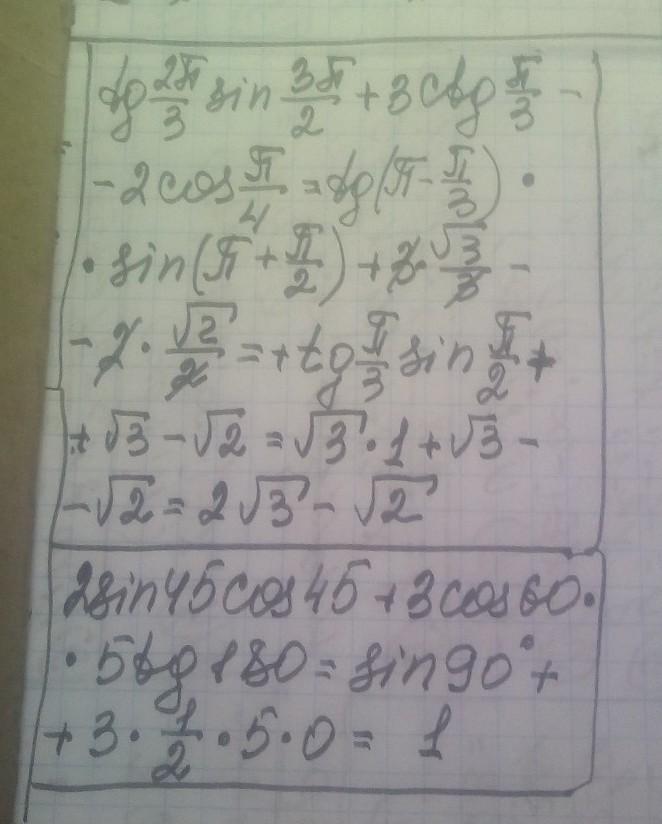 tg 2π/3 sin 3π/2 + 3ctg π/3 -
- 2cos π/4 = tg(π - π/3) •
• sin(π + π/2) + 3 √3/3 -
- 2 · √2/2 = + tg π/3 sin π/2 +
+ √3 - √2 = √3 · 1 + √3 -
- √2 = 2√3 - √2
2sin45cos45 + 3cos60 •
• 5tg180 = sin90° +
+ 3 · 1/2 · 5 · 0 = 1